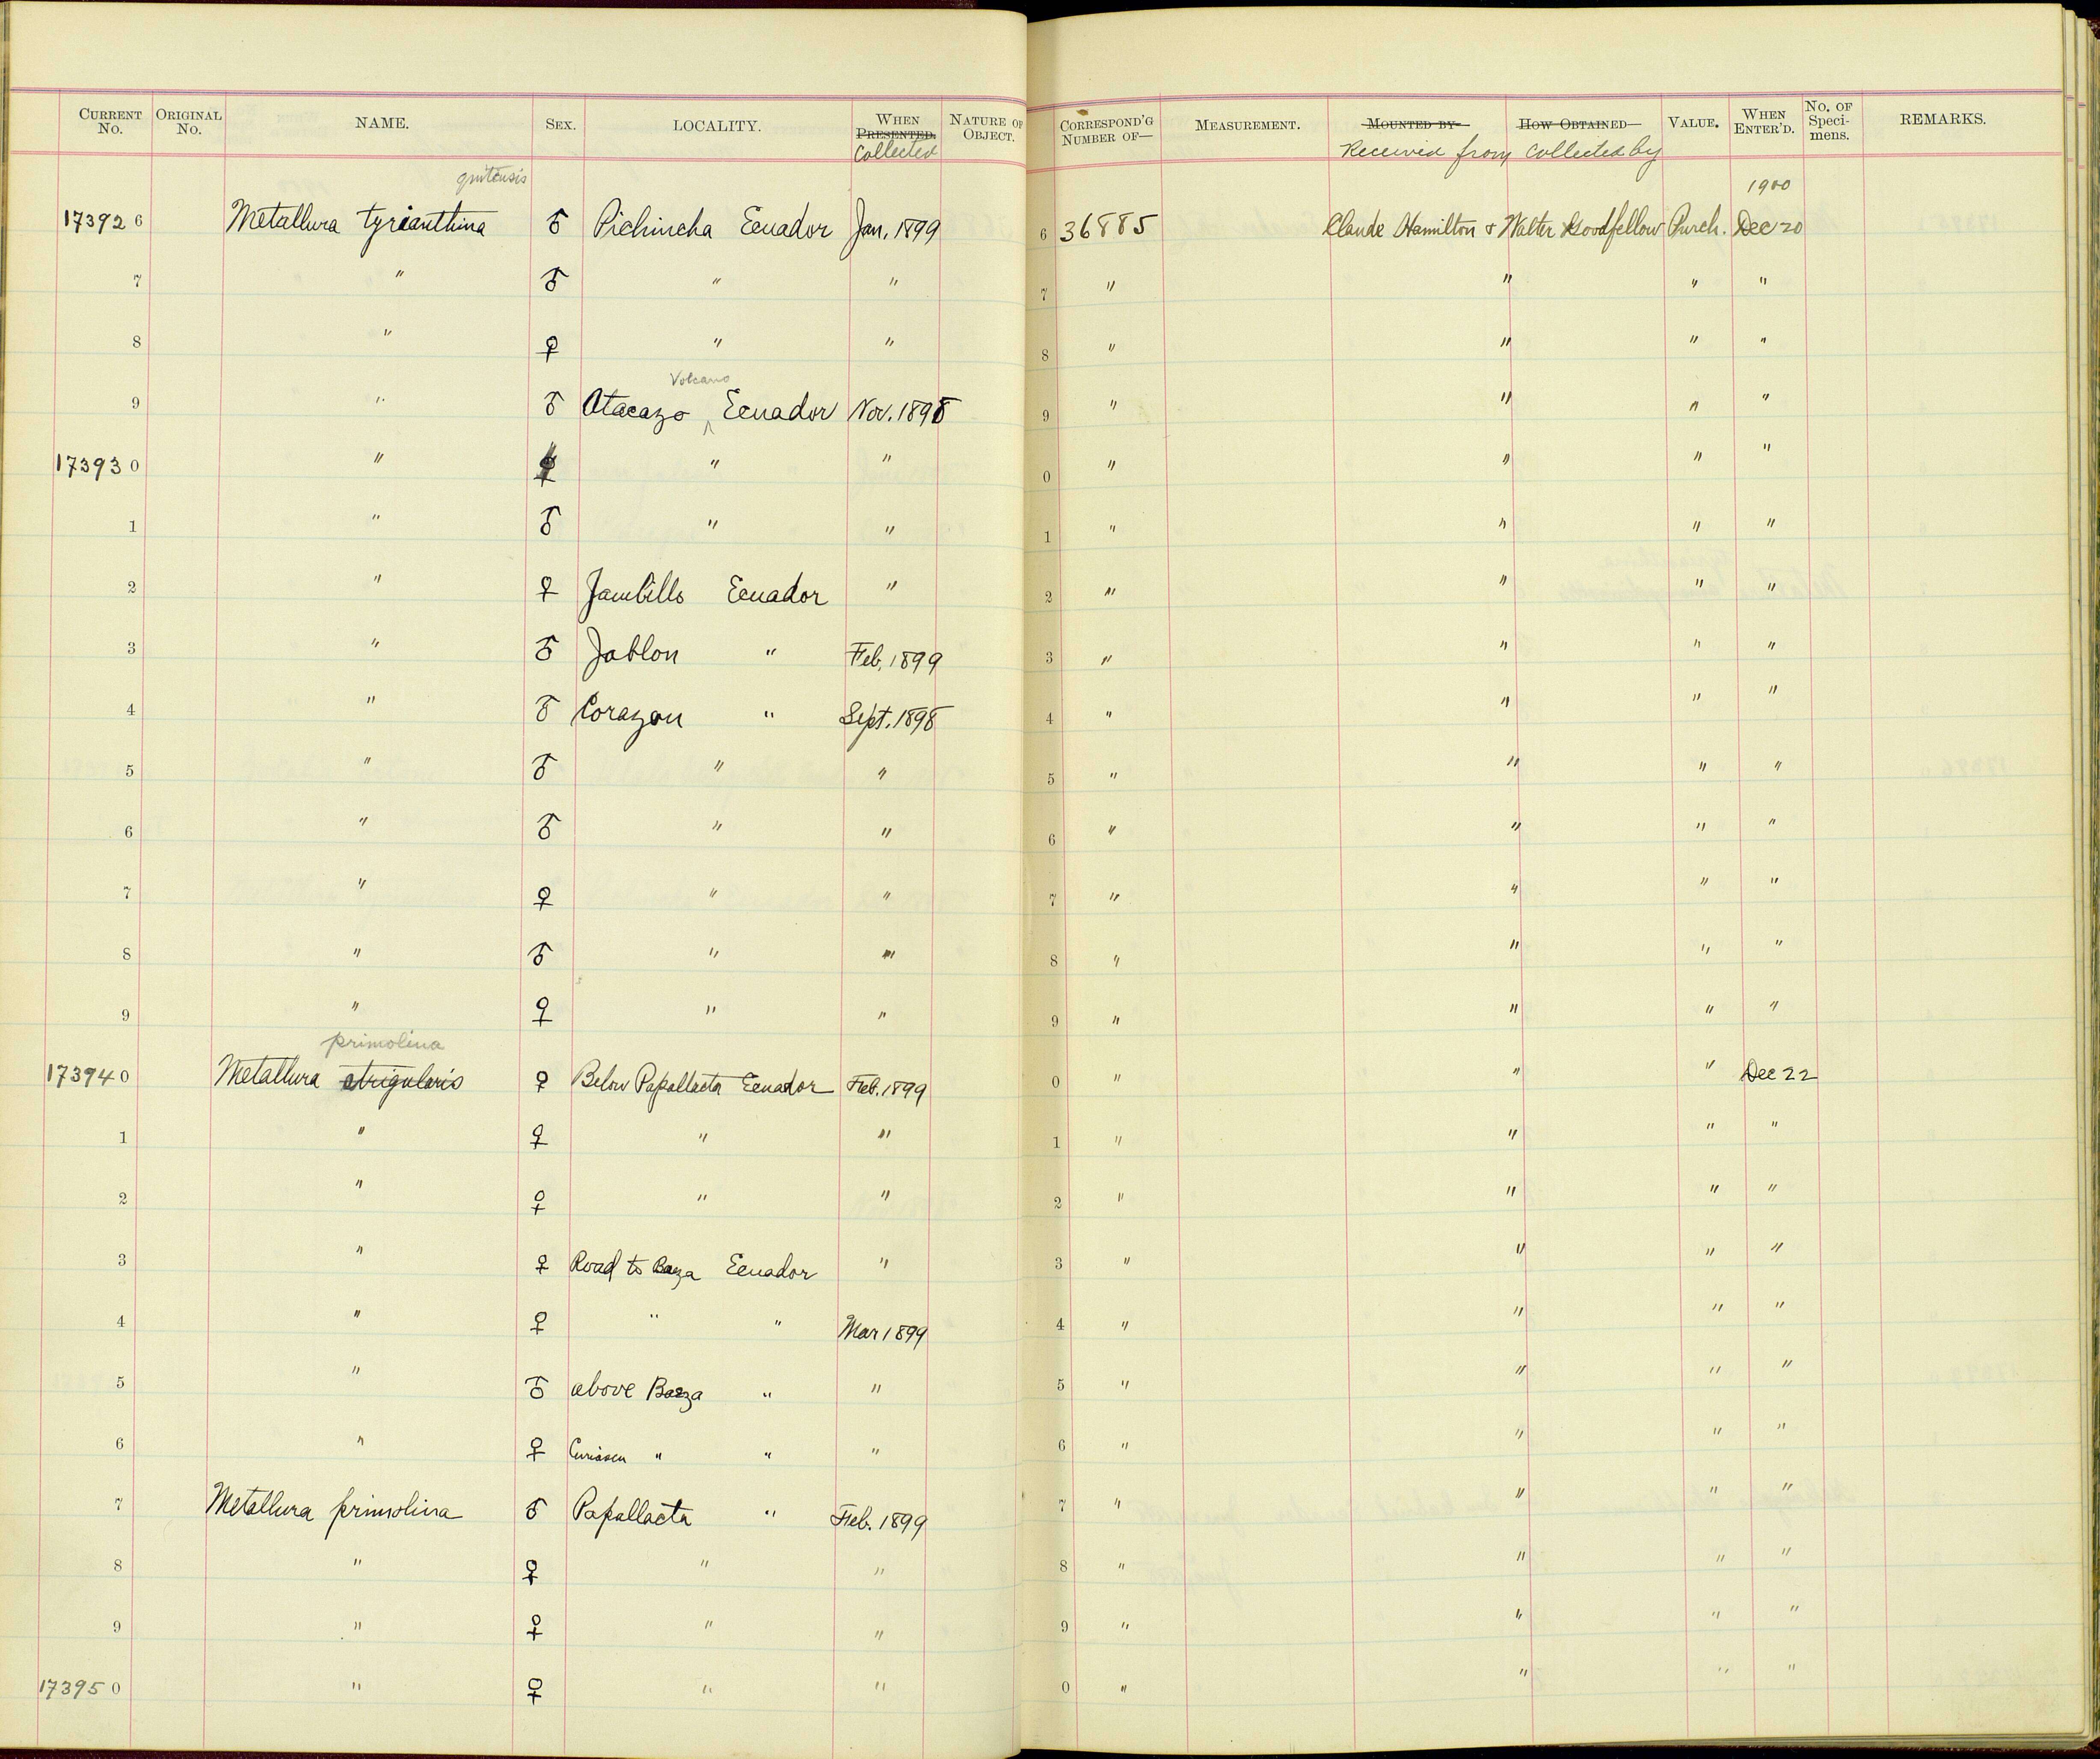 CURRENT No. ORIGINAL No. NAME. SEX. LOCALITY. WHEN PRESENTED. Collected NATURE OF OBJECT. CORRESPOND'G NUMBER OF— MEASUREMENT. MOUNTED BY— HOW OBTAINED— Received from Collected by VALUE. WHEN ENTER'D. No. OF Specimens. REMARKS.
quitensis 1900
173926 Metallura tyrianthina ♂ Pichincha Ecuador Jan. 1899 6 36885 Claude Hamilton & Walter Goodfellow Purch. Dec 20
7 " ♂ " " 7 " " " "
8 " ♀ " " 8 " " " "
Volcano
9 " ♂ Atacazo ^ Ecuador Nov. 1898 9 " " " "
173930 " ♀ " " 0 " " " "
1 " ♂ " " 1 " " " "
2 " ♀ Jambillo Ecuador " 2 " " " "
3 " ♂ Jablon " Feb. 1899 3 " " " "
4 " ♂ Corazon " Sept. 1898 4 " " " "
5 " ♂ " " 5 " " " "
6 " ♂ " " 6 " " " "
7 " ♀ " " 7 " " " "
8 " ♂ " " 8 " " " "
9 " ♀ " " 9 " " " "
primolina
173940 Metallura atrigularis ♀ Below Papallacta Ecuador Feb. 1899 0 " " " Dec 22
1 " ♀ " " 1 " " " "
2 " ♀ " " 2 " " " "
3 " ♀ Road to Baeza Ecuador " 3 " " " "
4 " ♀ " " Mar 1899 4 " " " "
5 " ♂ above Baeza " " 5 " " " "
6 " ♀ " " " 6 " " " "
7 Metallura primolina ♂ Papallacta " Feb. 1899 7 " " " "
8 " ♀ " " 8 " " " "
9 " ♀ " " 9 " " " "
173950 " ♀ " " 0 " " " "